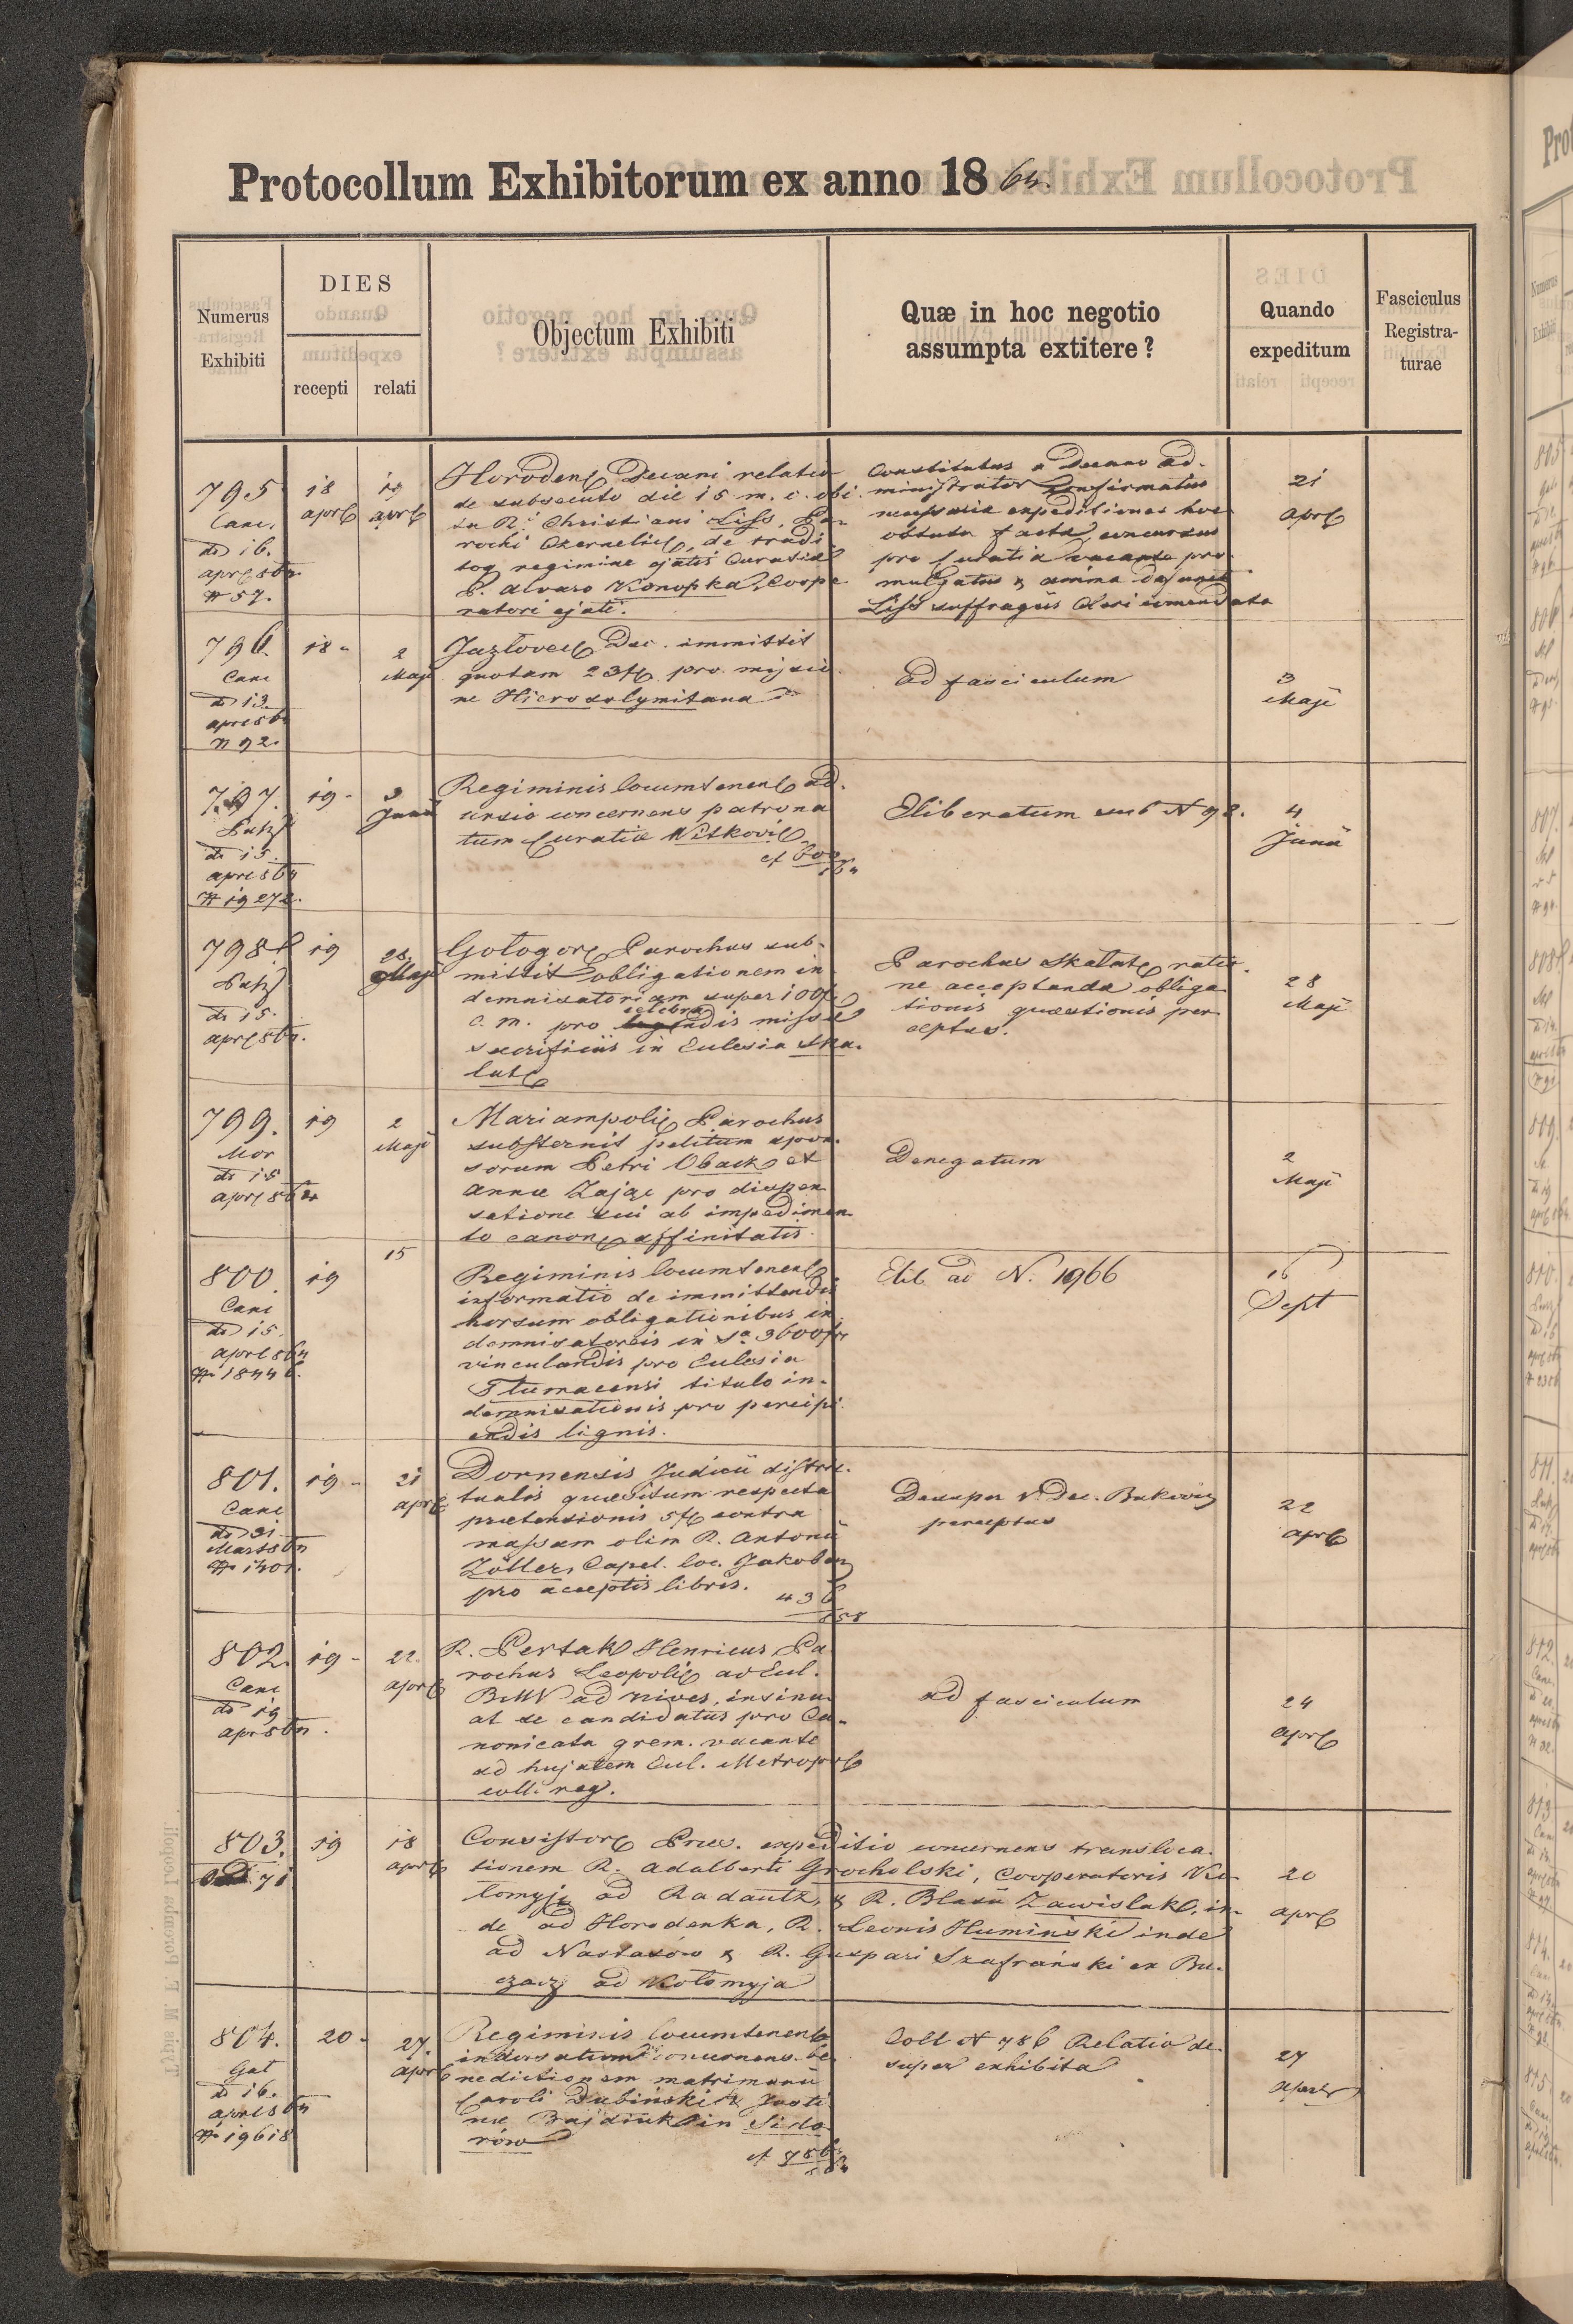 Protocollum Exhibitorum ex anno 1864.
Numerus Exhibiti
DIES
recepti relati
Objectum Exhibiti
Quæ in hoc negotio
assumpta extitere?
Quando
expeditum
Fasciculus
Registra-
turae
795
Canc.
dto 16.
apr 864
N 57.
18
apr
19
apr
Horoden Decani relatio
de subsecuto die 15 m. c. obi
tu R. Christiani Liss, Pa-
rochi Czernelic, de tradi
to regimine ejatis Curatiæ
P. Alvaro Konopka, Coope
ratori ejati.
Constitutus a Decano ad-
ministrator confirmatus
necessariæ expeditiones hoc
obtutu factæ, concursus
pro Curatia vacante pro-
mulgatus & anima defuncti
Liss suffragiis Cleri comendata
21
apr
796.
Canc
dto 13
apr 864
N 92.
18
2
Maji
Jazlovec Dec. immittit
quotam 23 f pro missio
ne Hierosolymitana
Ad fasciculum
3
Maji
797.
dto 15.
apr 864
N 19272.
19
3
Junii
Regiminis locumtenen ad
ursio concernens patrona
tum Curatiæ Witkovic
Eliberatum sub N 98.
4
Junii
798
dto 15.
apr 864.
19
28.
Maji
Gologor Parochus sub-
mittit obligationem in
demnisatoriam super 100 f
celebra
c. m. pro legendis missæ
sacrificiis in Eclesia Ska-
lat
Parochus Skalat ratio-
ne acceptandæ obliga-
tionis quæstionis per
ceptus.
28
Maji
799.
Mor
dto 15
apr 864
19
2
Maji
Mariampoli Parochus
substernit petitum spon-
sorum Petri Oback et
Annæ Zając pro dispen
satione sui ab impedimen-
to canon affinitatis.
Denegatum
2
Maji
800.
Canc
dto 15.
apr 864
N 18446.
19
15
Regiminis locumtenen
informatio de immittendis
horsum obligationibus in
demnisatoriis in Sa 3600 f
vinculandis pro Eclesia
Tlumacensi titulo in-
demnisationis pro percipi
endis lignis.
Elib ad N. 1966
16
Sept
801.
Canc
dto 31
Marti 864
N 1401.
19
21
apr
Dornensis Judicii distric-
tualis quæsitum respectu
prætensionis 5 f contra
massam olim R. Antonii
Zöller, Capel. loc. Jakoben
pro acceptis libris.
436
858
Desuper V. Dec. Bukovin
perceptus
22
apr
802.
Canc
dto 19
apr 864.
19
22.
apr
R. Pertak Henricus Pa
rochus Leopoli ad Eccl.
BMV ad nives, insinu
at se candidatus pro Ca-
nonicatu grem. vacante
ad hujatem Eccl. Metropol
coll. reg.
ad fasciculum
24
apr
803.
71
19
18
apr
Consistor Præs. expeditio concernens transloca-
tionem R. Adalberti Grocholski, Cooperatoris Ko-
lomyje ad Radautz, & R. Blasii Zawislak, in-
de ad Horodenka, R. Leonis Humiński inde
ad Nastasów & R. Gaspari Szafrański ex Bu-
czacz ad Kołomyja
20
apr
804.
Gal
dto 16.
apr 864
N 19618
20
27.
apr
Regiminis locumtenen
indorsatum concernens be
nedictionem matrimonii
Caroli Dubiński & Justi
næ Bajdiuk in Sido
rów
cf 786
864
Coll N 786 Relatio de-
super exhibita
27
apr
Typis M. F. Poremba Leopoli